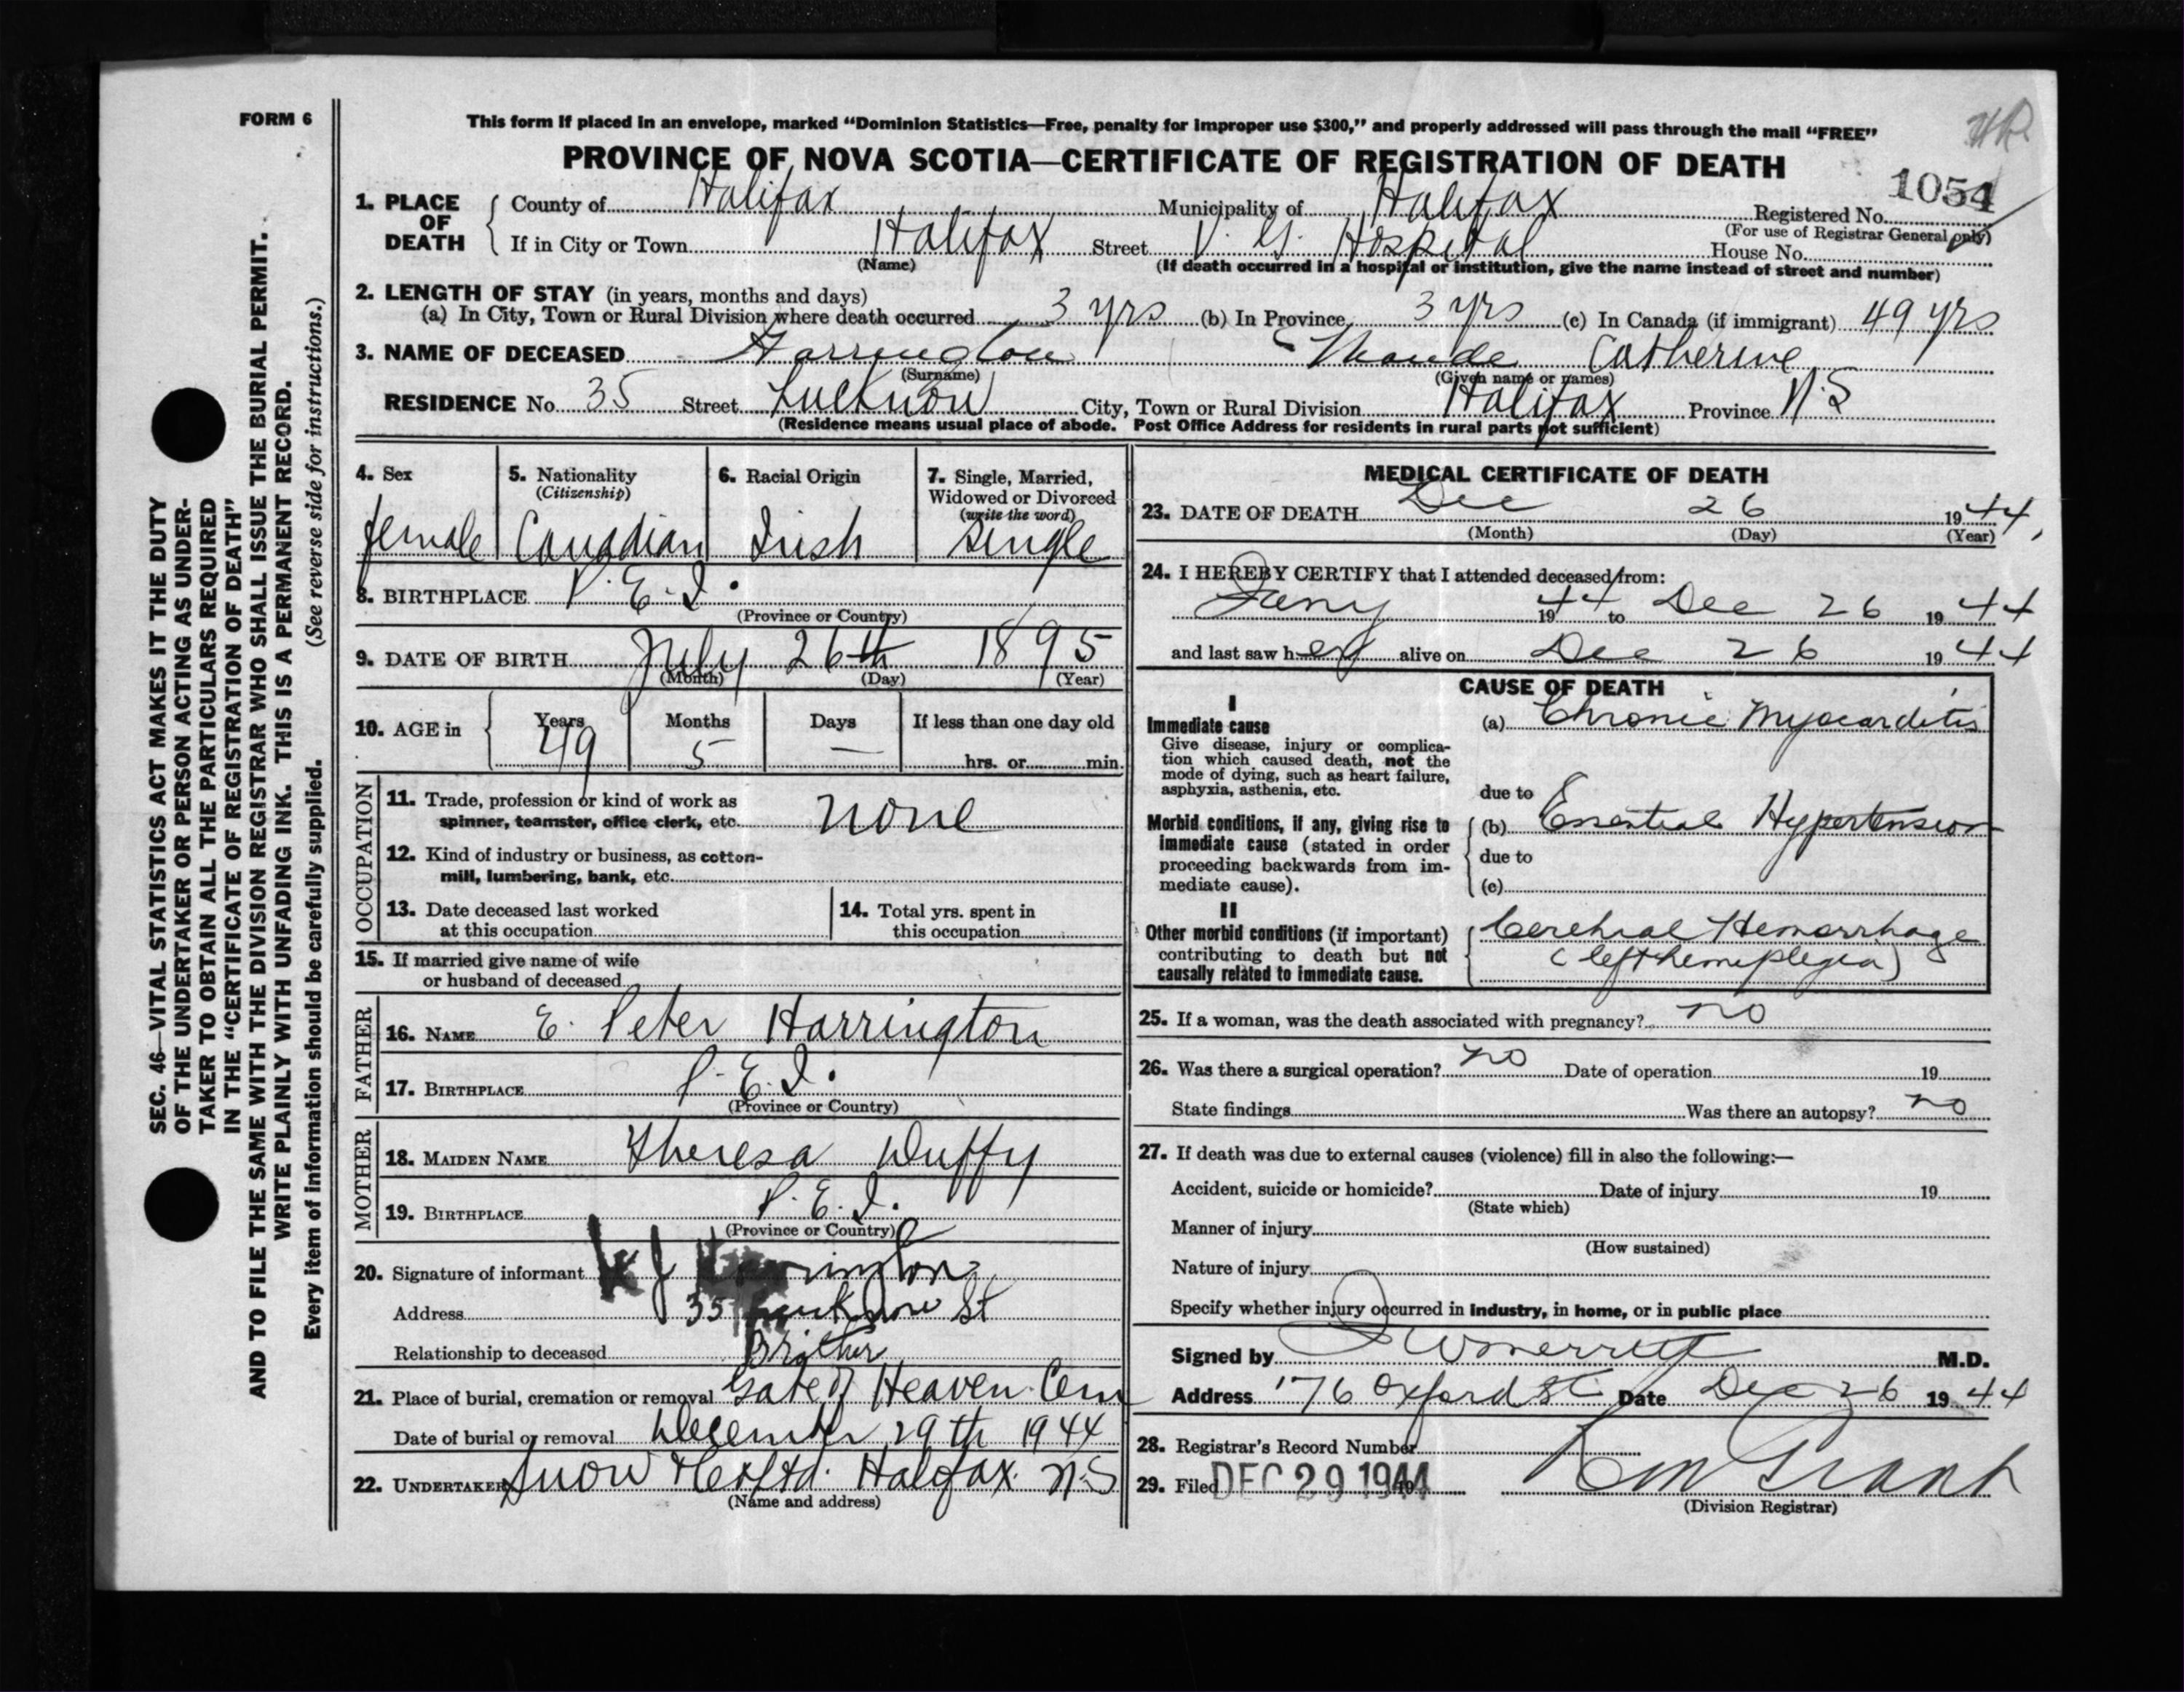 FORM 6
This form if placed in an envelope, marked “Dominion Statistics—Free, penalty for improper use $300,” and properly addressed will pass through the mail “FREE”
PROVINCE OF NOVA SCOTIA—CERTIFICATE OF REGISTRATION OF DEATH
1054
1. PLACE OF DEATH
County of Halifax Municipality of Halifax Registered No.
(For use of Registrar General only)
If in City or Town Halifax Street V. G. Hospital House No.
(Name) (If death occurred in a hospital or institution, give the name instead of street and number)
2. LENGTH OF STAY (in years, months and days)
(a) In City, Town or Rural Division where death occurred 3 yrs (b) In Province 3 yrs (c) In Canada (if immigrant) 49 yrs
3. NAME OF DECEASED Harrington Maude Catherine
(Surname) (Given name or names)
RESIDENCE No. 35 Street Lucknow City, Town or Rural Division Halifax Province N S
(Residence means usual place of abode. Post Office Address for residents in rural parts not sufficient)
4. Sex
female
5. Nationality
(Citizenship)
Canadian
6. Racial Origin
Irish
7. Single, Married,
Widowed or Divorced
(write the word)
Single
8. BIRTHPLACE P. E. I.
(Province or Country)
9. DATE OF BIRTH July 26th 1895
(Month) (Day) (Year)
10. AGE in
Years Months Days If less than one day old
49 5 — hrs. or min.
OCCUPATION
11. Trade, profession or kind of work as
spinner, teamster, office clerk, etc. none
12. Kind of industry or business, as cotton-
mill, lumbering, bank, etc.
13. Date deceased last worked
at this occupation
14. Total yrs. spent in
this occupation
15. If married give name of wife
or husband of deceased
FATHER
16. NAME E. Peter Harrington
17. BIRTHPLACE P. E. I.
(Province or Country)
MOTHER
18. MAIDEN NAME Theresa Duffy
19. BIRTHPLACE P. E. I.
(Province or Country)
20. Signature of informant J Harrington
Address 35 Lucknow St
Relationship to deceased Brother
21. Place of burial, cremation or removal Gate of Heaven Cem
Date of burial or removal December 29th 1944
22. UNDERTAKER Snow & Co Ltd. Halifax. N.S
(Name and address)
MEDICAL CERTIFICATE OF DEATH
23. DATE OF DEATH Dec 26 1944
(Month) (Day) (Year)
24. I HEREBY CERTIFY that I attended deceased from:
Jany 1944 to Dec 26 1944
and last saw her alive on Dec 26 1944
CAUSE OF DEATH
I
Immediate cause
Give disease, injury or complica-
tion which caused death, not the
mode of dying, such as heart failure,
asphyxia, asthenia, etc.
(a) Chronic Myocarditis
due to
Morbid conditions, if any, giving rise to
immediate cause (stated in order
proceeding backwards from im-
mediate cause).
(b) Essential Hypertension
due to
(c)
II
Other morbid conditions (if important)
contributing to death but not
causally related to immediate cause.
Cerebral Hemorrhage
(left hemiplegia)
25. If a woman, was the death associated with pregnancy? no
26. Was there a surgical operation? no Date of operation 19
State findings Was there an autopsy? no
27. If death was due to external causes (violence) fill in also the following:—
Accident, suicide or homicide? Date of injury 19
(State which)
Manner of injury
(How sustained)
Nature of injury
Specify whether injury occurred in industry, in home, or in public place
Signed by M.D.
Address 176 Oxford St. Date Dec 26 1944
28. Registrar's Record Number
29. Filed DEC 29 1944 19
Grant
(Division Registrar)
SEC. 46—VITAL STATISTICS ACT MAKES IT THE DUTY
OF THE UNDERTAKER OR PERSON ACTING AS UNDER-
TAKER TO OBTAIN ALL THE PARTICULARS REQUIRED
IN THE “CERTIFICATE OF REGISTRATION OF DEATH”
AND TO FILE THE SAME WITH THE DIVISION REGISTRAR WHO SHALL ISSUE THE BURIAL PERMIT.
WRITE PLAINLY WITH UNFADING INK. THIS IS A PERMANENT RECORD.
Every item of information should be carefully supplied. (See reverse side for instructions.)